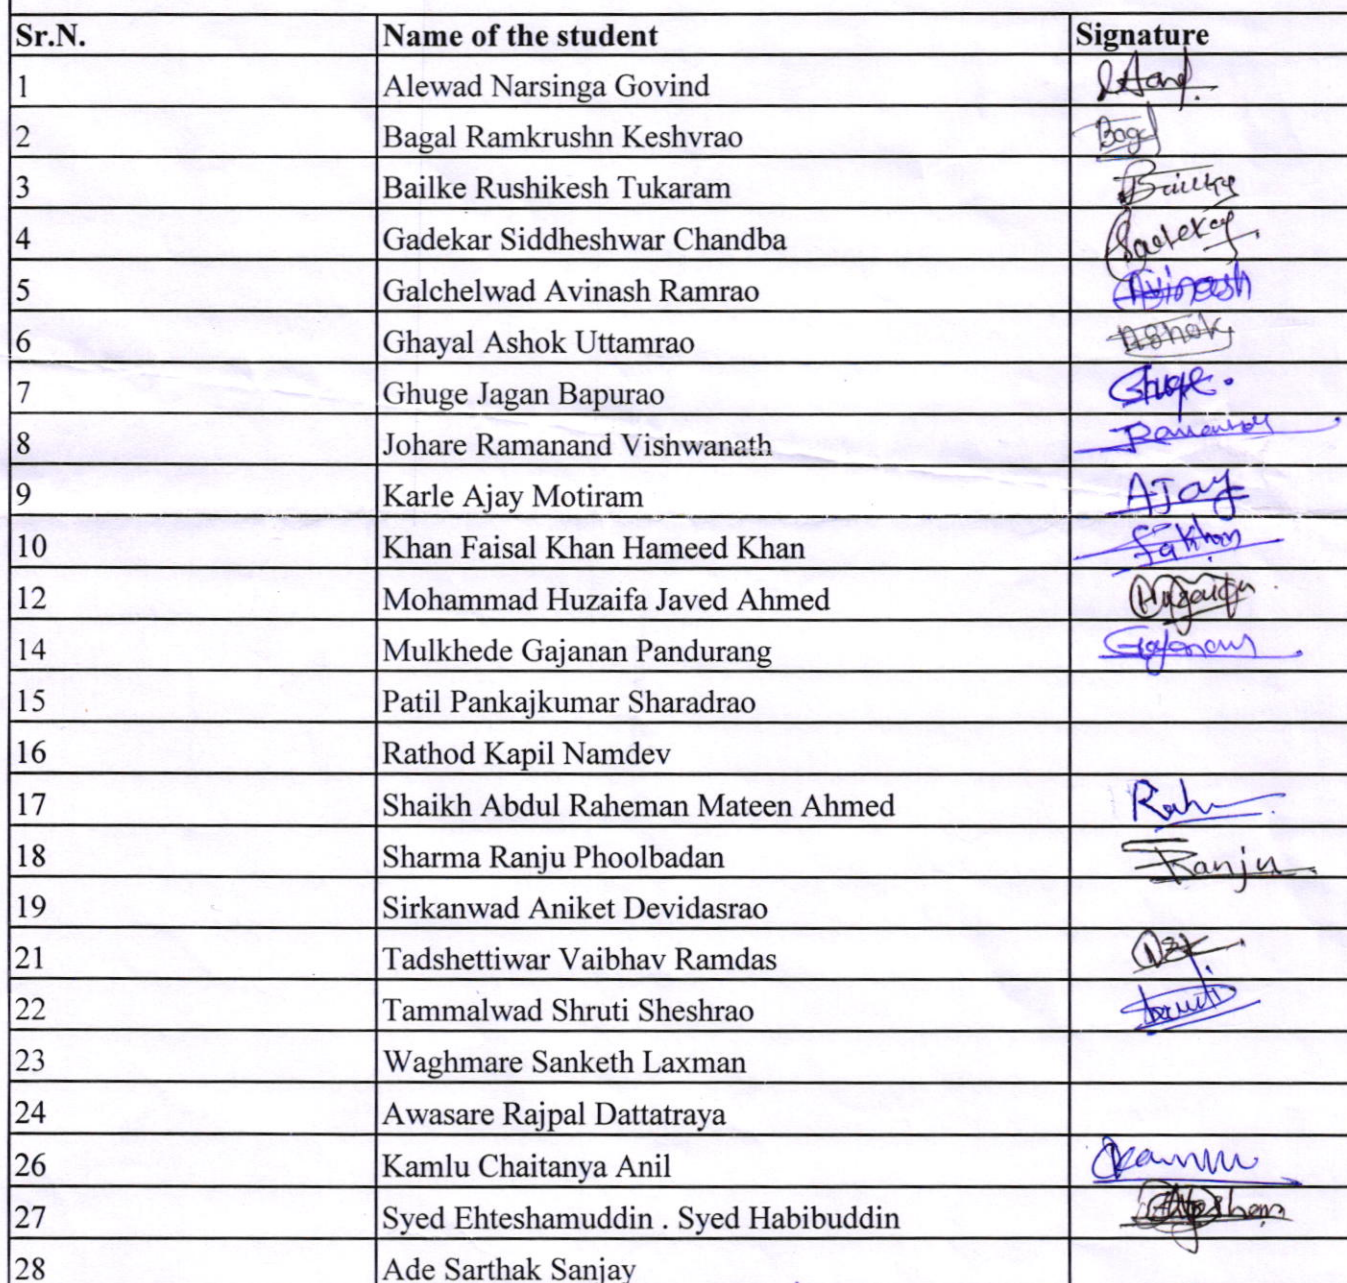 Sr.N. Name of the student Signature
1 Alewad Narsinga Govind
2 Bagal Ramkrushn Keshvrao Bagal
3 Bailke Rushikesh Tukaram Bailke
4 Gadekar Siddheshwar Chandba
5 Galchelwad Avinash Ramrao Avinash
6 Ghayal Ashok Uttamrao Ashok
7 Ghuge Jagan Bapurao Ghuge.
8 Johare Ramanand Vishwanath
9 Karle Ajay Motiram Ajay
10 Khan Faisal Khan Hameed Khan
12 Mohammad Huzaifa Javed Ahmed Huzaifa
14 Mulkhede Gajanan Pandurang Gajanan
15 Patil Pankajkumar Sharadrao
16 Rathod Kapil Namdev
17 Shaikh Abdul Raheman Mateen Ahmed
18 Sharma Ranju Phoolbadan Ranju
19 Sirkanwad Aniket Devidasrao
21 Tadshettiwar Vaibhav Ramdas
22 Tammalwad Shruti Sheshrao
23 Waghmare Sanketh Laxman
24 Awasare Rajpal Dattatraya
26 Kamlu Chaitanya Anil
27 Syed Ehteshamuddin . Syed Habibuddin
28 Ade Sarthak Sanjay